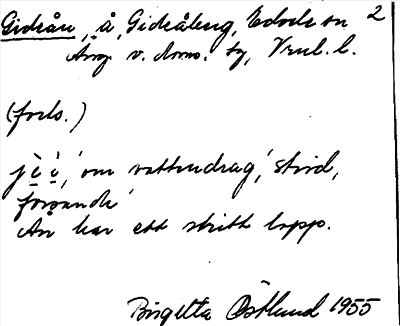 Gideån, å, Gideåberg, Edsele sn 2
Ång v. doms. by, Vrul. l.
(forts.)
'om vattendrag', strid,
forsande'
Ån har ett stritt lopp.
Birgitta Östlund 1955